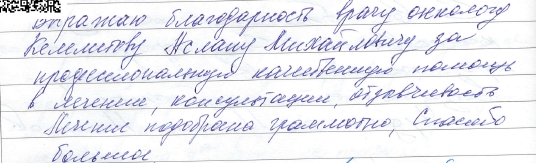 отражаю благодарность врачу онкологу
Келеметову Аслану Михайловичу за
профессиональную качественную помощь
в лечение, консультации, отзывчивость
Лечение подобрана грамматно, Спасибо
большое